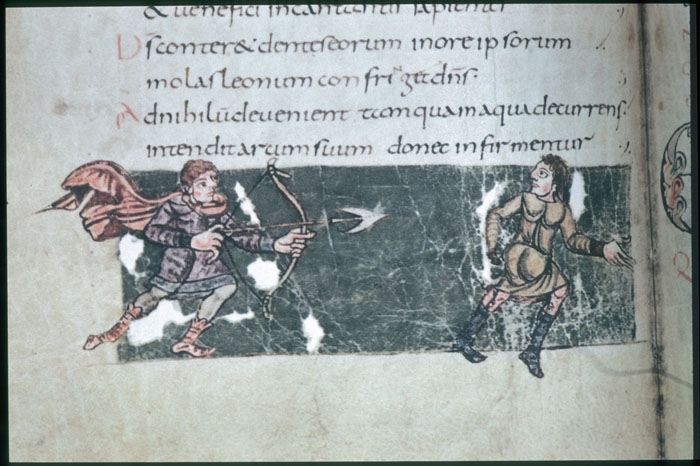 & uenefici incantantur sapienter
Ds conter & dentes eorum in ore ipsorum
molas leonum confriget dns.
Ad nihilū devenient tamquam aqua decurrens.
intendit arcum suum donec infirmentur